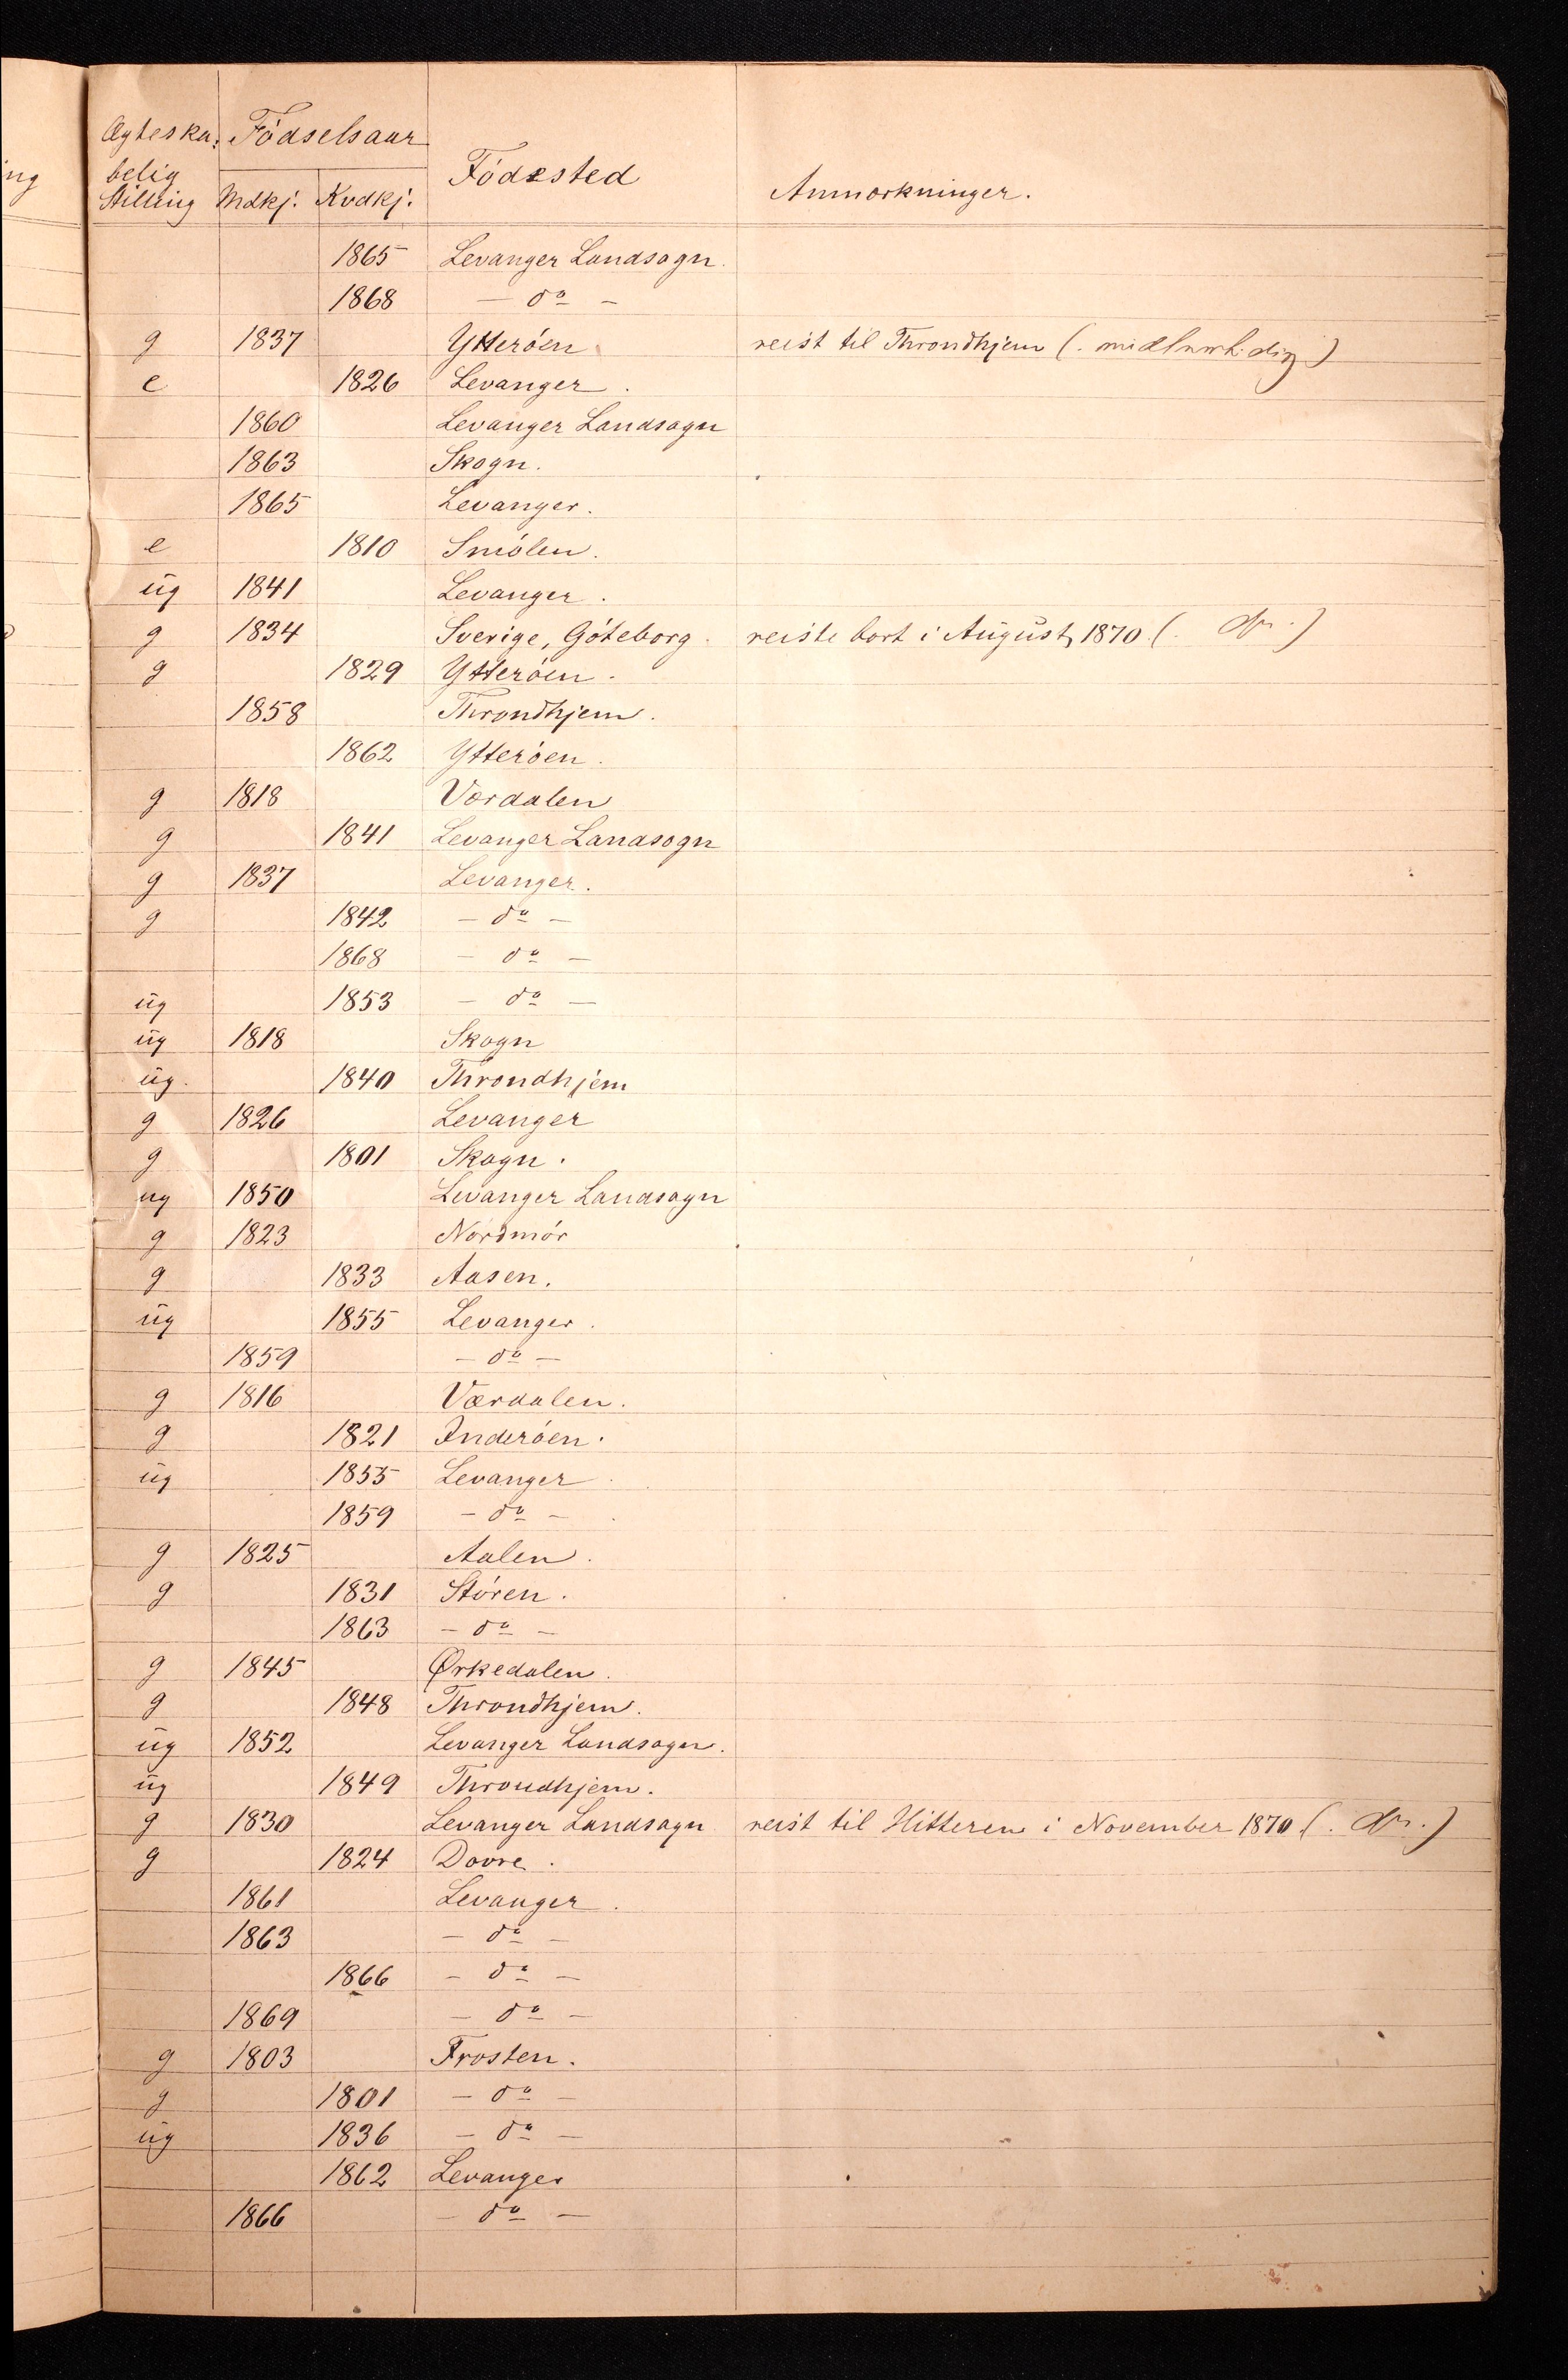 Ægteska: Födselsaar
belig Födested Anmærkninger.
Stilling Mdkj. Kvdkj.
1865 Levanger Landsogn.
1868 — do —
g 1837 Ytteröen reist til Throndhjem (.
e 1826 Levanger.
1860 Levanger Landsogn
1863 Skogn.
1865 Levanger.
e 1810 Smölen.
ug 1841 Levanger.
g 1834 Sverige, Göteborg. reiste bort i August 1870 (. do.)
g 1829 Ytteröen.
1858 Throndhjem.
1862 Ytteröen.
g 1818 Værdalen
g 1841 Levanger Landsogn
g 1837 Levanger.
g 1842 — do —
1868 — do —
ug 1853 — do —
ug 1818 Skogn
ug. 1840 Throndhjem
g 1826 Levanger
g 1801 Skogn.
ug 1850 Levanger Landsogn
g 1823 Nordmör
g 1833 Aasen.
ug 1855 Levanger.
1859 — do —
g 1816 Værdalen.
g 1821 Inderöen.
ug 1855 Levanger.
1859 — do —
g 1825 Aalen.
g 1831 Stören.
1863 — do —
g 1845 Ørkedalen.
g 1848 Throndhjem.
ug 1852 Levanger Landsogn.
ug 1849 Throndhjem.
g 1830 Levanger Landsogn reist til Hitteren i November 1870 (. do.)
g 1824 Dovre.
1861 Levanger.
1863 — do —
1866 — do —
1869 — do —
g 1803 Frosten.
g 1801 — do —
ug 1836 — do —
1862 Levanger
1866 — do —